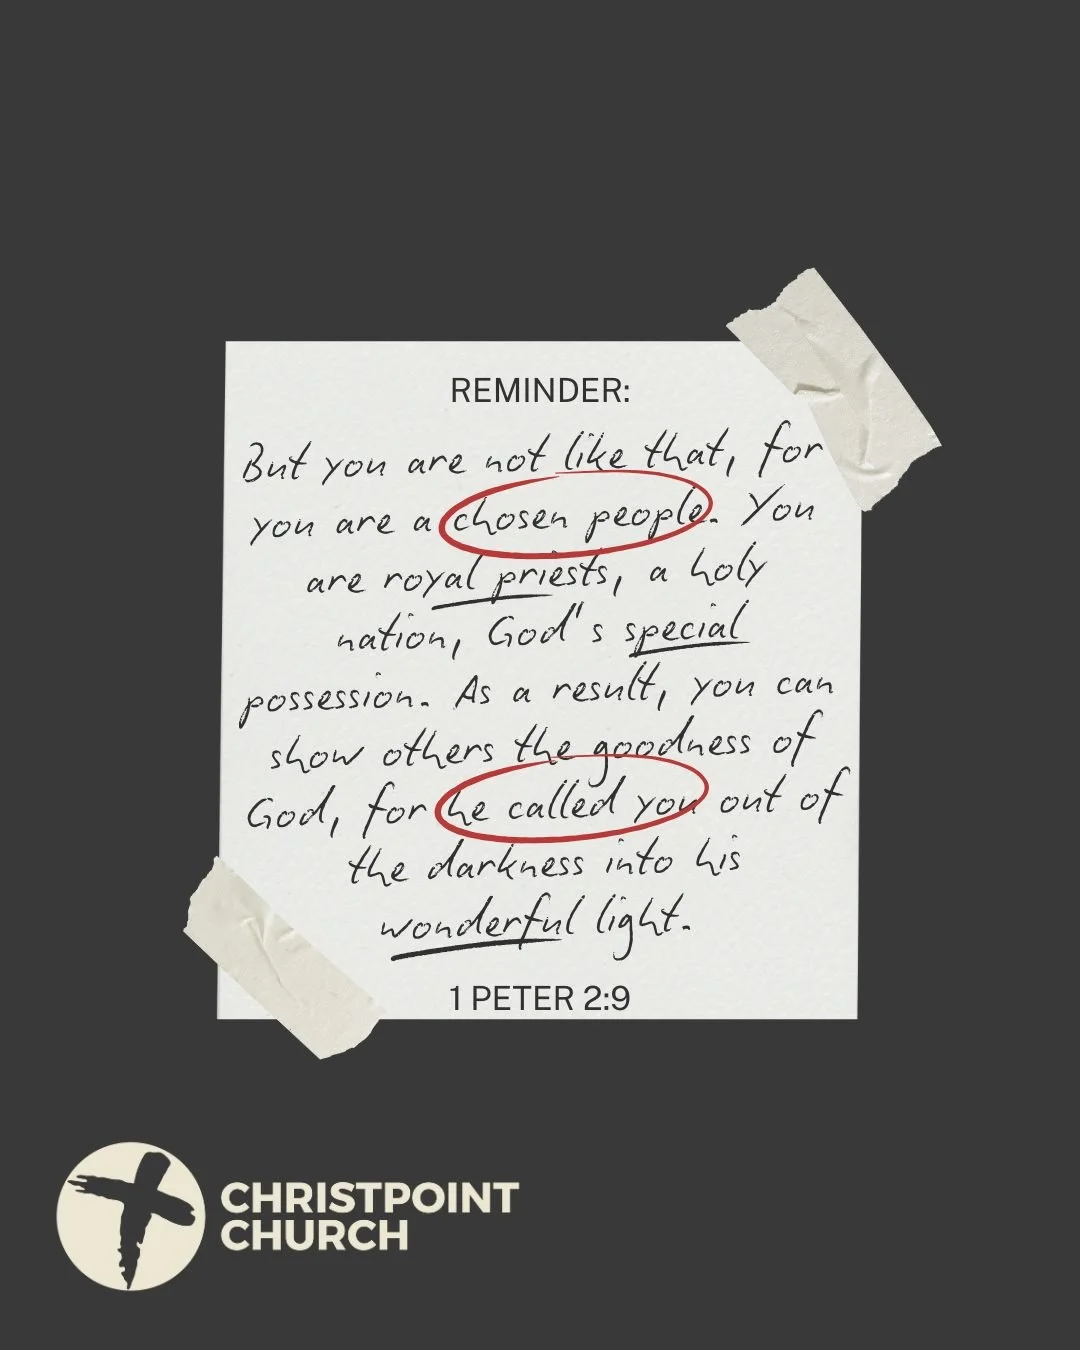 REMINDER:
But you are not like that, for
you are a chosen people. You
are royal priests, a holy
nation, God's special
possession. As a result, you can
show others the goodness of
God, for he called you out of
the darkness into his
wonderful light.
1 PETER 2:9
CHRISTPOINT
CHURCH